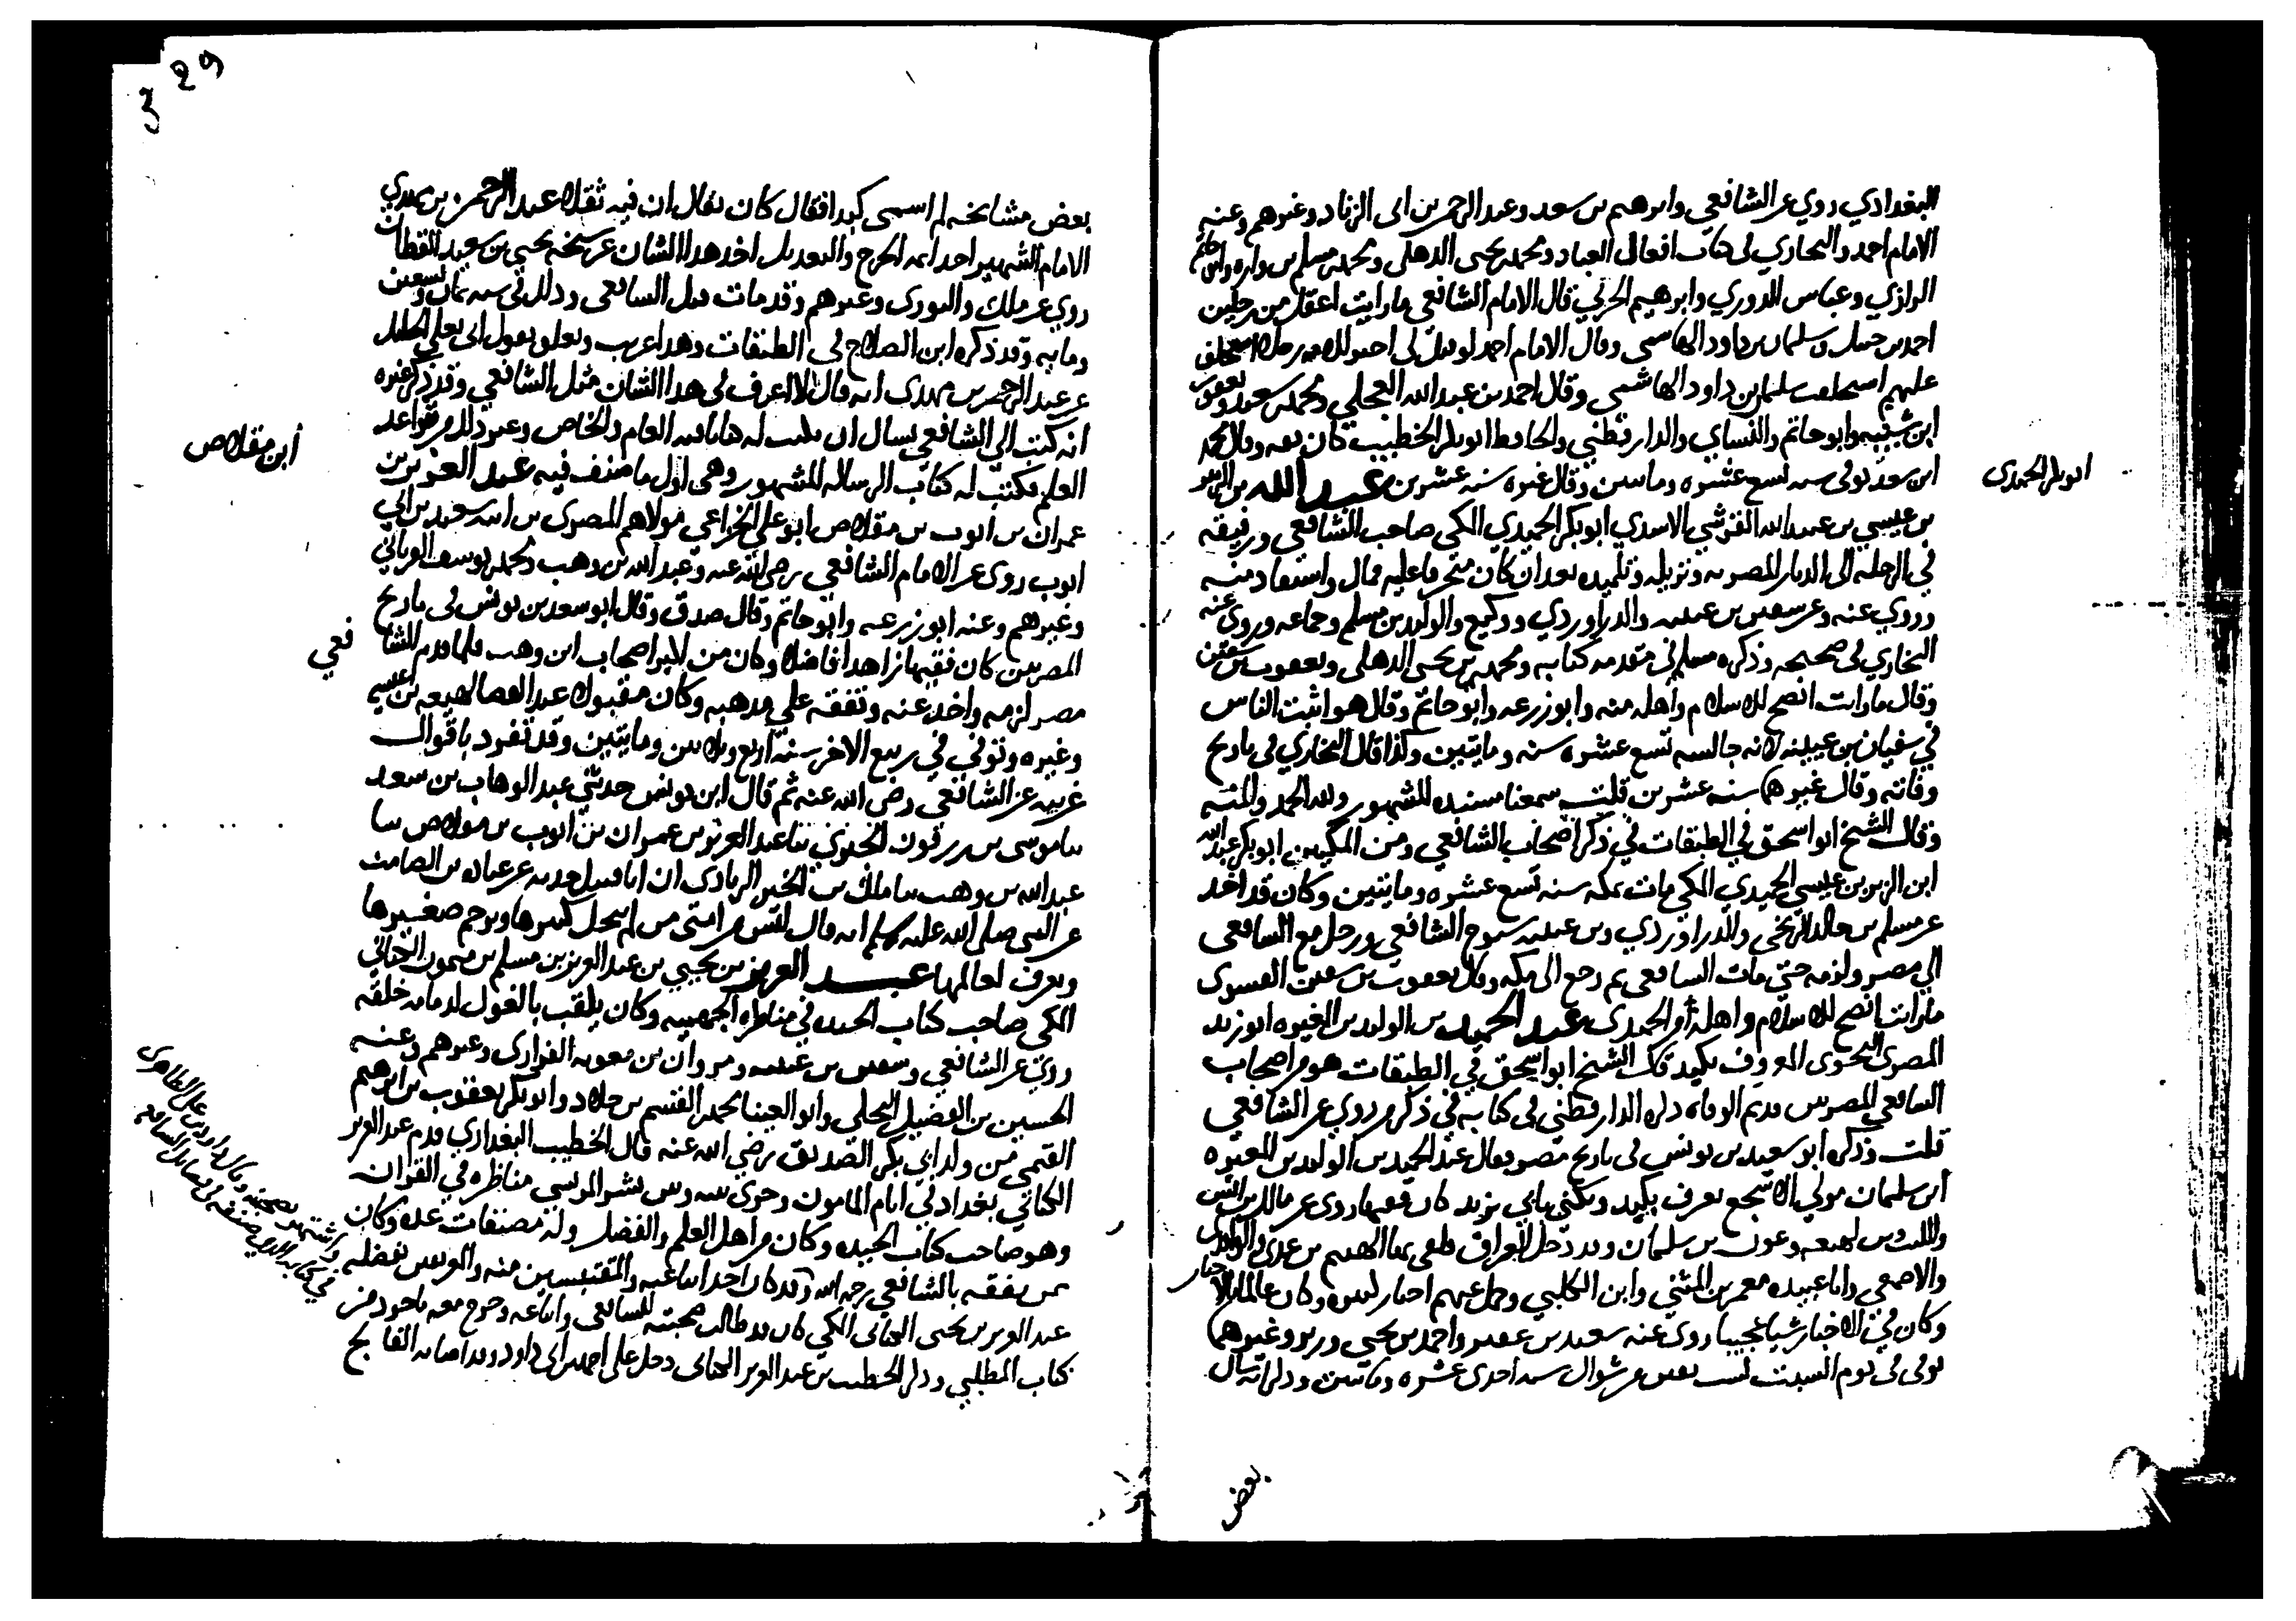 البغدادي روى عن الشافعي وابرهيم بن سعد وعبد الرحمن بن ابى الزناد وغيرهم وعنه
الامام احمد والبخاري في كتاب افعال العباد ومحمد بن يحيى الذهلي ومحمد بن مسلم بن واره وابو حاتم
الرازي وعباس الدوري وابرهيم الحربي قال الامام الشافعي ما رايت اعقل من رجلين
احمد بن حنبل و سليمان بن داود الهاشمي وقال الامام احمد لو قيل لي اختر للامه رجلا استخلف
عليهم استخلفت سليمان بن داود الهاشمي وقال احمد بن عبد الله العجلي ومحمد بن سعد ويعقوب
ابن شيبه وابو حاتم والنساي والدارقطني والحافظ ابو بكر الخطيب كان ثقه وقال محمد
ابن سعد توفي سنه تسع عشره ومايتين وقال غيره سنه عشرين عبد الله بن الزبير
بن عيسى بن عبد الله القرشي الاسدي ابو بكر الحميدي المكي صاحب الشافعي ورفيقه
في الرحله الى الديار المصريه ونزيله وتلميذه بعد ان كان منحرفا عليه فمال واستفاد منه
وروى عنه وعن سفين بن عيينه والدراوردي ووكيع والوليد بن مسلم وجماعه وروى عنه
البخاري في صحيحه وذكره مسلم في مقدمه كتابه ومحمد بن يحيى الذهلي ويعقوب بن سفين
وقال ما رايت انصح للاسلام واهله منه وابو زرعه وابو حاتم وقال هو اثبت الناس
في سفيان بن عيينه لانه جالسه تسع عشره سنه ومايتين وكذا قال البخاري في تاريخ
وفاته وقال غيرهما سنه عشرين قلت سمعنا مسنده المشهور ولله الحمد والمنه
وقال الشيخ ابو اسحق في الطبقات في ذكر اصحاب الشافعي ومن المكيين ابو بكر عبد الله
ابن الزبير بن عيسى الحميدي المكي مات بمكه سنه تسع عشره ومايتين وكان قد اخذ
عن مسلم بن خالد الزنجي والدراوردي وبن عيينه شيوخ الشافعي ورحل مع الشافعي
الى مصر ولزمه حتى مات الشافعي ثم رجع الى مكه وقال يعقوب بن سفين الفسوى
ما رايت انصح للاسلام واهله من الحميدي عبد الحميد بن الوليد بن المغيره ابو زيد
المصري النحوى المعروف بكيد قال الشيخ ابو اسحق في الطبقات هو من اصحاب
الشافعي المصريين قديم الوفاه ذكره الدارقطني في كتابه في ذكر من روى عن الشافعي
قلت وذكره ابو سعيد بن يونس في تاريخ مصر فقال عبد الحميد بن الوليد بن المغيره
ابن سليمان مولى الاشجع يعرف بكيد ويكنى بابي يزيد كان فقيها روى عن مالك بن انس
والليث وبن لهيعه وعون بن سليمان وقد دخل العراق فلقى بها الهيثم بن عدي والواقدي
والاصمعي وابا عبيده معمر بن المثنى وابن الكلبي وحمل عنهم اخبار كثيره وكان عالما بالاخبار
وكان في الاخبار شيا عجيبا روى عنه سعيد بن عفير واحمد بن يحيى بن وزير وغيرهما
توفى في يوم السبت لست بقين من شوال سنه احدى عشره ومايتين وذكر انه سال
بعض
ابو بكر الحميدي
29
بعض مشايخه لم اسمى كيدا فقال كان يقال ان فيه ثقلا عبد الرحمن بن مهدي
الامام الشهير احد ايمه الجرح والتعديل اخذ هذا الشان عن شيخه يحيى بن سعيد القطان
روى عن ملك والثورى وغيرهم وقد مات قبل الشافعي وذلك في سنه ثمان وتسعين
ومايه وقد ذكره ابن الصلاح في الطبقات وهذا غريب وتعلق بقول ابى يعلى الخليل
عن عبد الرحمن بن مهدى انه قال لا اعرف في هذا الشان مثل الشافعي وقد ذكر غيره
انه كتب الى الشافعي يسال ان يكتب له كتابا فيه العام والخاص وغير ذلك من قواعد
العلم فكتب له كتاب الرساله المشهور وهى اول ما صنف فيه عبد العزيز بن
عمران بن ايوب بن مقلاص ابو علي الخزاعي مولاهم المصرى بن ابنه سعيد بن ابي
ايوب روى عن الامام الشافعي رضي الله عنه وعبد الله بن وهب ومحمد بن يوسف الفريابي
وغيرهم وعنه ابو زرعه وابو حاتم وقال صدوق وقال ابو سعيد بن يونس في تاريخ
المصريين كان فقيها زاهدا فاضلا وكان من اكابر اصحاب ابن وهب فلما قدم الشافعي
مصر لزمه واخذ عنه وتفقه على مذهبه وكان مقبولا عند القضاه لهيعه بن عيسى
وغيره وتوفي في ربيع الاخر سنه اربع وثلاثين ومايتين وقد تفرد باقوال
غريبه عن الشافعي رضى الله عنه ثم قال ابن يونس حدثني عبد الوهاب بن سعد
ثنا موسى بن زرقون الخنوي ثنا عبد العزيز بن عمران بن ايوب بن مقلاص ثنا
عبد الله بن وهب ثنا ملك بن الخير الزيادى ان ابا قبيل حدثه عن عباده بن الصامت
عن النبي صلى الله عليه وسلم انه قال ليس من امتى من لم يجل كبيرها ويرحم صغيرها
ويعرف لعالمها عبد العزيز بن يحيى بن عبد العزيز بن مسلم بن ميمون الكناني
المكي صاحب كتاب الحيده في مناظره الجهميه وكان يلقب بالغول لدمامه خلقه
روى عن الشافعي وسفين بن عيينه ومروان بن معويه الفزارى وغيرهم وعنه
الحسين بن الفضيل البجلي وابو العينا محمد بن القسم بن خلاد وابو بكر يعقوب بن ابرهيم
القيمي من ولد ابي بكر الصديق رضي الله عنه قال الخطيب البغدادي قدم عبد العزيز
الكناني بغداد في ايام المامون وجرى بينه وبين بشر المريسي مناظره في القران
وهو صاحب كتاب الحيده وكان من اهل العلم والفضل وله مصنفات عده وكان
ممن تفقه بالشافعي رحمه الله كان احد اتباعه والمقتبسين منه والمعترفين بفضله
عبد العزيز بن يحيى الكناني المكي كان قد طالت صحبته للشافعي واتباعه وخرج معه
كتاب المطلبي وذكر الخطيب بن عبد العزيز الكناني دخل على احمد بن ابى داود وقد اصابه الفالج
ابن مقلاص
واشتهر بصحبته وقال داود بن علي الظاهرى
في كتابه الذي صنفه في فضايل الشافعي